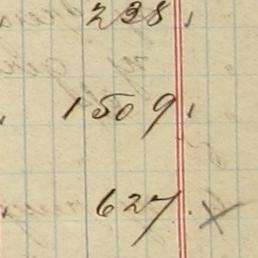 238,
1509,
627. x